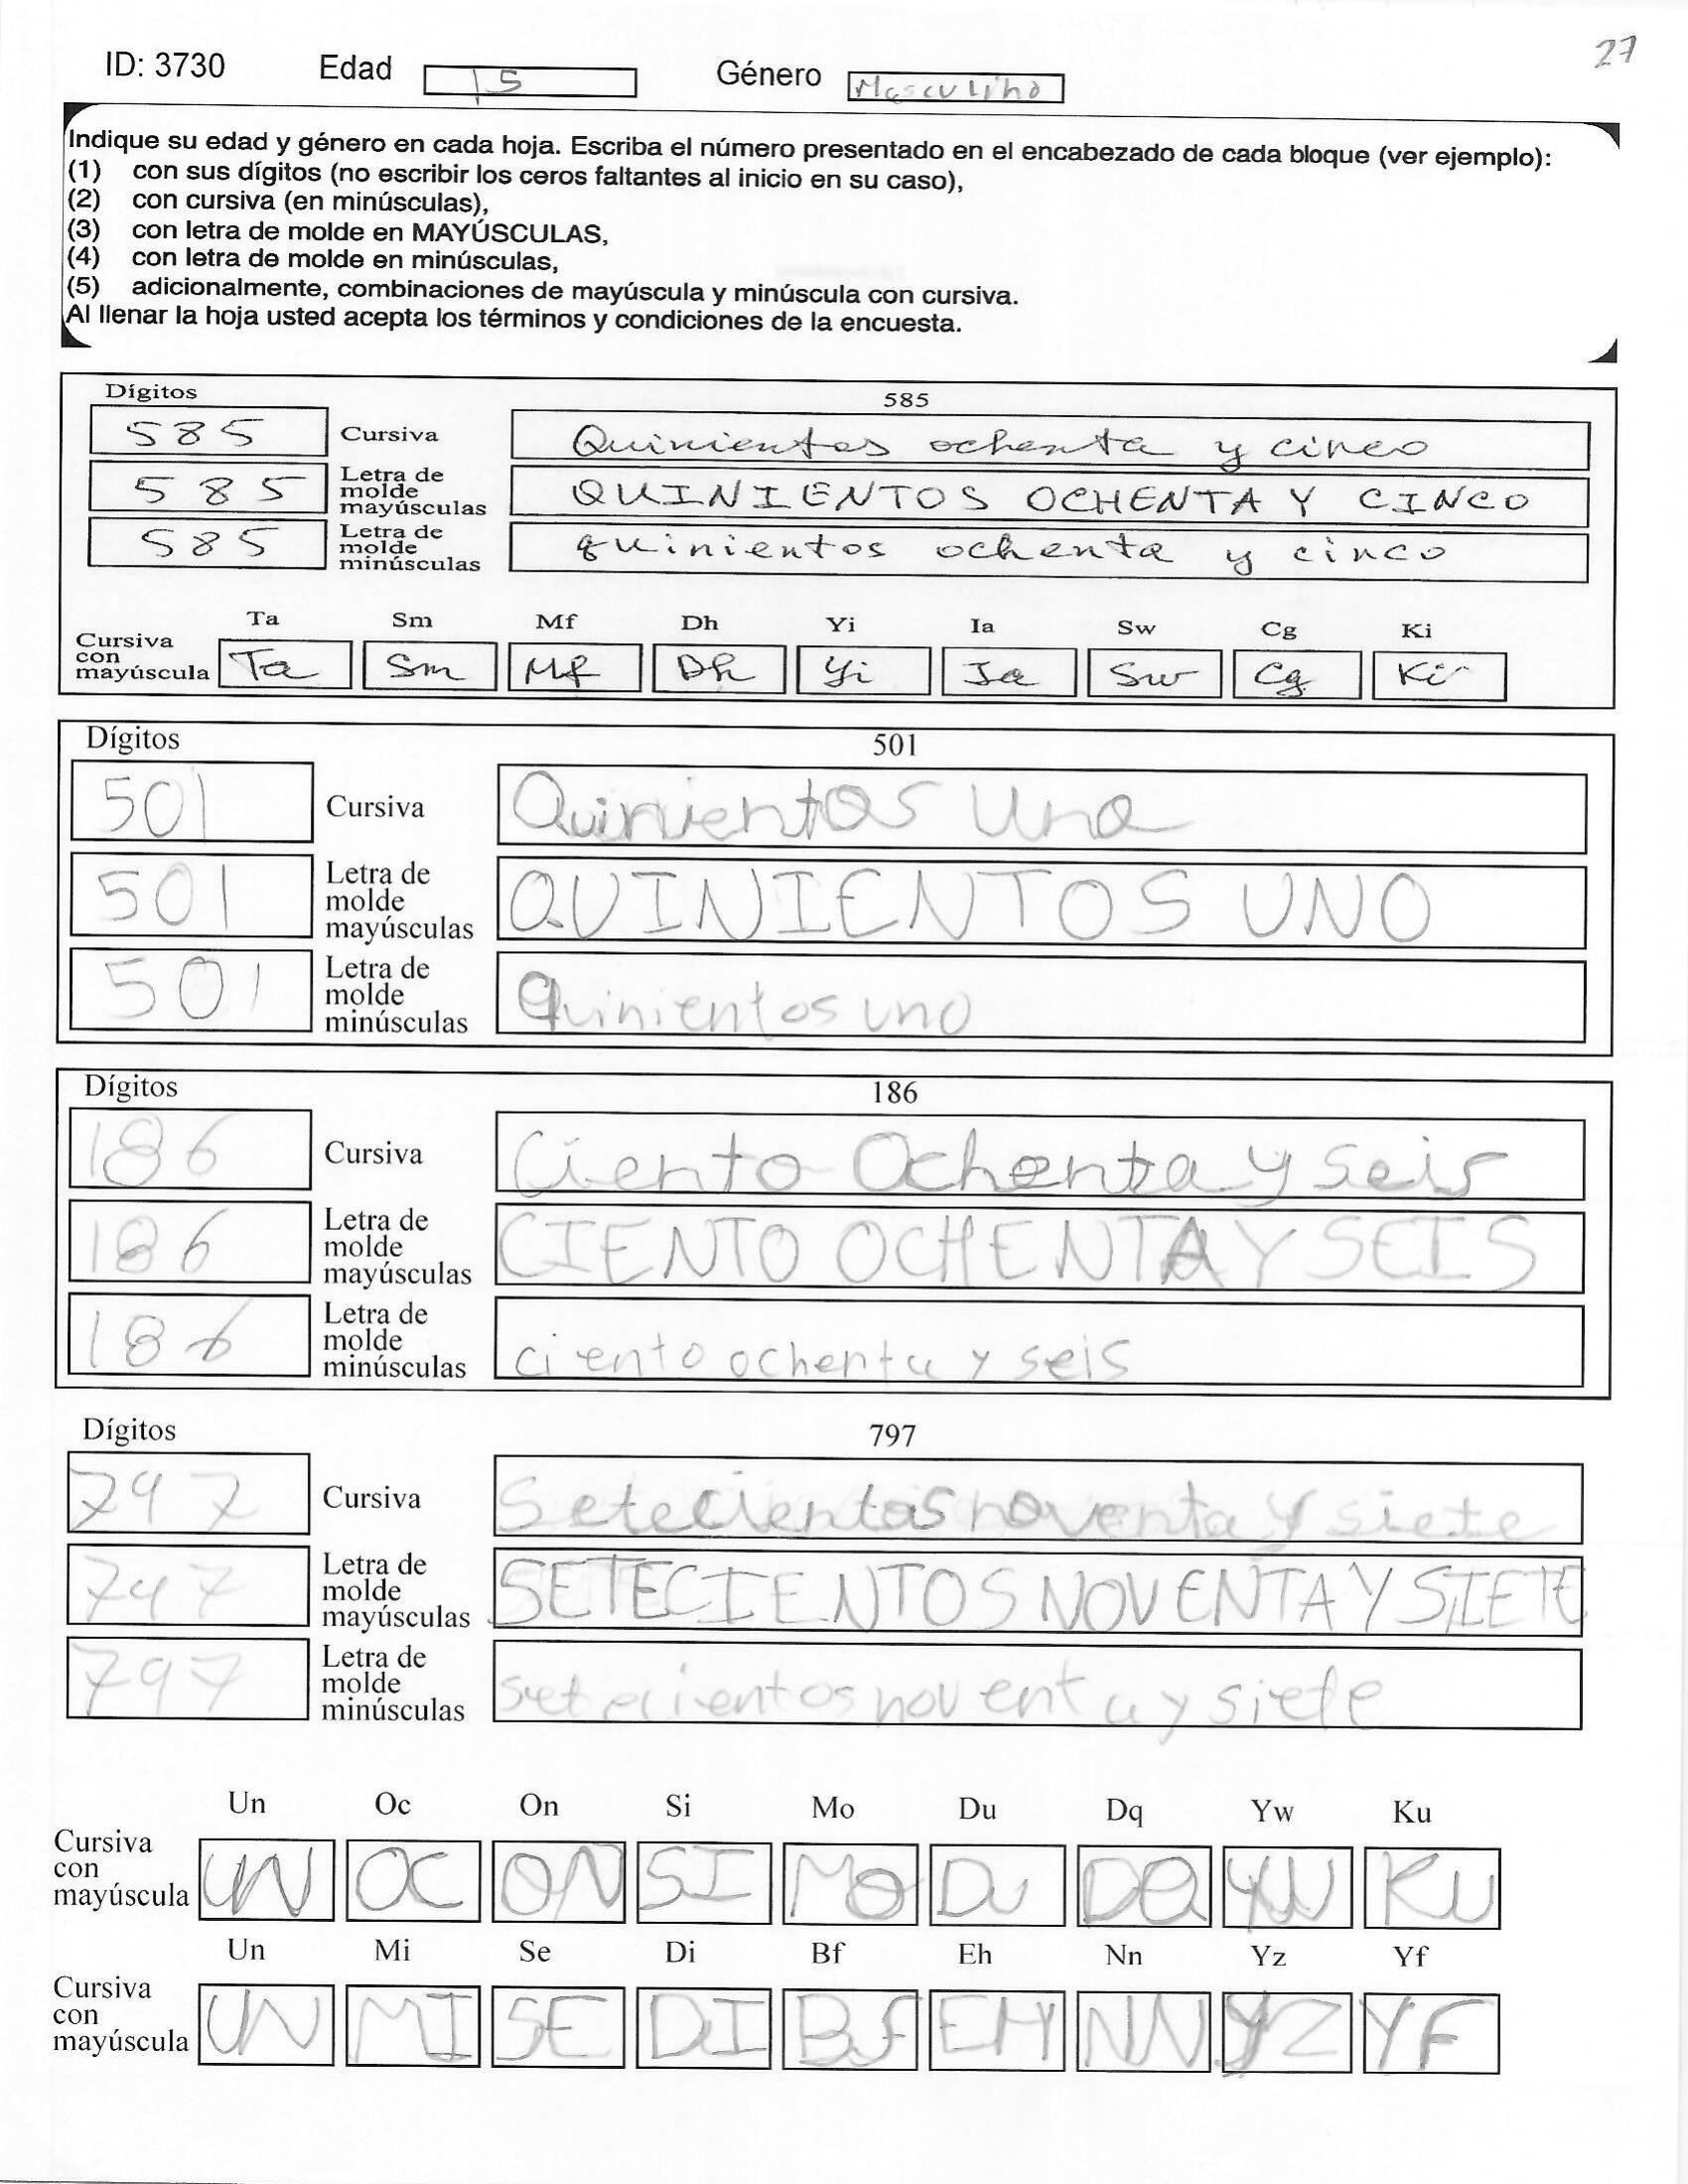 27
ID: 3730 Edad 15 Género Masculino
Indique su edad y género en cada hoja. Escriba el número presentado en el encabezado de cada bloque (ver ejemplo):
(1) con sus dígitos (no escribir los ceros faltantes al inicio en su caso),
(2) con cursiva (en minúsculas),
(3) con letra de molde en MAYÚSCULAS,
(4) con letra de molde en minúsculas,
(5) adicionalmente, combinaciones de mayúscula y minúscula con cursiva.
Al llenar la hoja usted acepta los términos y condiciones de la encuesta.
Dígitos 585
585 Cursiva Quinientos ochenta y cinco
585 Letra de molde mayúsculas QUINIENTOS OCHENTA Y CINCO
585 Letra de molde minúsculas quinientos ochenta y cinco
Ta Sm Mf Dh Yi Ia Sw Cg Ki
Cursiva con mayúscula Ta Sm Mf Dh Yi Ia Sw Cg Ki
Dígitos 501
501 Cursiva Quinientos Uno
501 Letra de molde mayúsculas QUINIENTOS UNO
501 Letra de molde minúsculas Quinientos uno
Dígitos 186
186 Cursiva Ciento Ochenta y seis
186 Letra de molde mayúsculas CIENTO OCHENTA Y SEIS
186 Letra de molde minúsculas ciento ochenta y seis
Dígitos 797
797 Cursiva Setecientos noventa y siete
797 Letra de molde mayúsculas SETECIENTOS NOVENTA Y SIETE
797 Letra de molde minúsculas setecientos noventa y siete
Un Oc On Si Mo Du Dq Yw Ku
Cursiva con mayúscula UN OC ON SI Mo Du DQ YW KU
Un Mi Se Di Bf Eh Nn Yz Yf
Cursiva con mayúscula UN MI SE DI Bf EH NN YZ YF